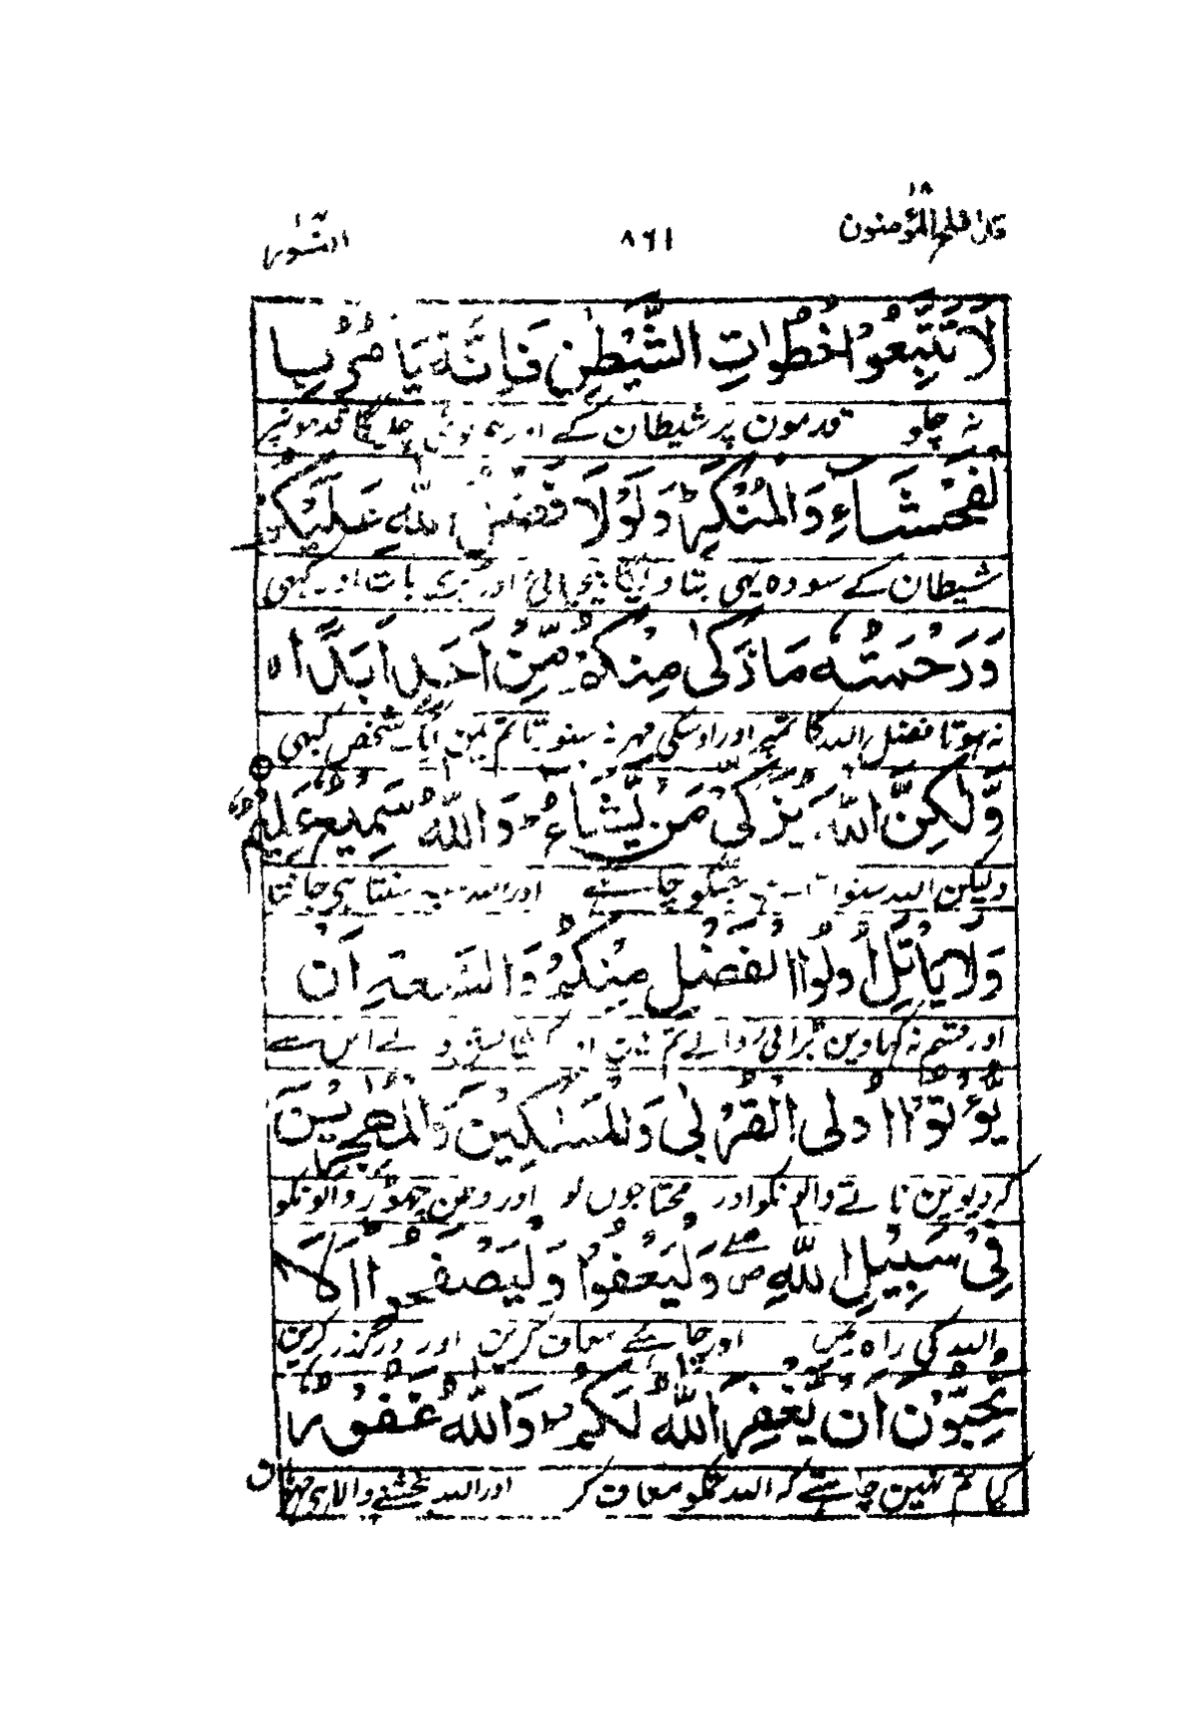 ١٨
قال افلح المؤمنون
٨٦١
النّور
لَا تَتَّبِعُوْا خُطُوٰتِ الشَّيْطٰنِ فَاِنَّهٗ يَاْمُرُ بِا
نہ چلو قدمون پر شیطان کے اور جو کوئی چلیگا قدمونپر
لْفَحْشَآءِ وَالْمُنْكَرِ ؕ وَلَوْ لَا فَضْلُ اللّٰهِ عَلَيْكُمْ
شیطان کے سو وہ یہی بتاویگا بیحیائی اور بری بات اور کبہی
وَرَحْمَتُهٗ مَا زَكٰى مِنْكُمْ مِّنْ اَحَدٍ اَبَدًا ۙ
نہ ہوتا فضل اللہ کا تمپر اور اوسکی مہر نہ سنورتا تم مین ایک شخص کبہی
وَّلٰكِنَّ اللّٰهَ يُزَكِّىْ مَنْ يَّشَآءُ ؕ وَاللّٰهُ سَمِيْعٌ عَلِيْمٌ
ولیکن اللہ سنوارتا ہے جسکو چاہے اور اللہ سب سنتا ہی جانتا
وَلَا يَاْتَلِ اُولُوا الْفَضْلِ مِنْكُمْ وَالسَّعَةِ اَنْ
اور قسم نہ کہاوین بڑائی والے تم مین اور کشایش والے اس سے
يُّؤْتُوْۤا اُولِى الْقُرْبٰى وَالْمَسٰكِيْنَ وَالْمُهٰجِرِيْنَ
کہ دیوین ناتے والونکو اور محتاجوں کو اور وطن چہوڑنے والونکو
فِىْ سَبِيْلِ اللّٰهِ ۖ وَلْيَعْفُوْا وَلْيَصْفَحُوْا ؕ اَلَا
اللہ کی راہ میں اور چاہئے معاف کرین اور درگذر کرین
تُحِبُّوْنَ اَنْ يَّغْفِرَ اللّٰهُ لَكُمْ ؕ وَاللّٰهُ غَفُوْرٌ
کیا تم نہین چاہتے کہ اللہ تمکو معاف کرے اور اللہ بخشنے والا ہی مہربان